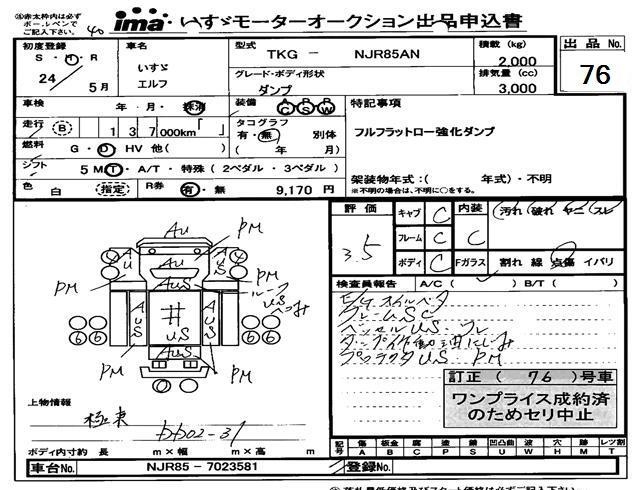 ※赤太枠内は必ず
ボールペンで
ご記入下さい。
40
ima いすゞモーターオークション出品申込書
初度登録
S・H・R
24 / 5月
車名
いすゞ
エルフ
型式
TKG - NJR85AN
グレード・ボディ形状
ダンプ
積載 (kg)
2,000
排気量 (cc)
3,000
出品No.
76
車検 年・月・抹消
装備 AC PS PW
走行 B 137,000km「 」
タコグラフ
有・無 別体
( 年 月)
燃料 G・D HV 他( )
シフト 5 MT・A/T・特殊 (2ペダル・3ペダル)
色 白 (指定) R券 有・無 9,170 円
特記事項
フルフラットロー強化ダンプ
架装物年式:( 年式)・不明
※不明の場合は、不明に○をする。
評価
3.5
キャブ C
フレーム C
ボディ C
内装 C
汚れ 破れ ヤニ スレ
Fガラス 割れ 線 点傷 イバリ
検査員報告 A/C ( ) B/T ( )
フレームSC
PM
訂正 ( 76 )号車
ワンプライス成約済
のためセリ中止
AU
PM
AUS
US
上物情報
極東
DD02-31
ボディ内寸約 長 m×幅 m×高 m
記号 傷 A 板金 B 腐 C 塗 P 錆 S 凹凸曲 U 波 W 穴 H 跡 M レツ割 T
車台No. NJR85 - 7023581
登録No.